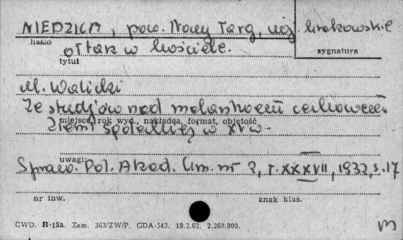 NIEDZICA, pow. Nowy Targ, woj. krakowskie
hasło
ołtarz w kościele.
sygnatura
tytuł
wł. Walicki
Ze studjów nad malarstwem cechowem
miejsce, rok wyd., nakładca, format, objętość
Ziemi Spółeckiej w XV w.
uwagi
Spraw. Pol. Akad. Um. nr 2, t. XXXVII, 1932, s. 17
nr inw.
znak klas.
CWD. B-15a. Zam. 363/ZW/P. GDA-543. 19.2.62. 2.260.000.